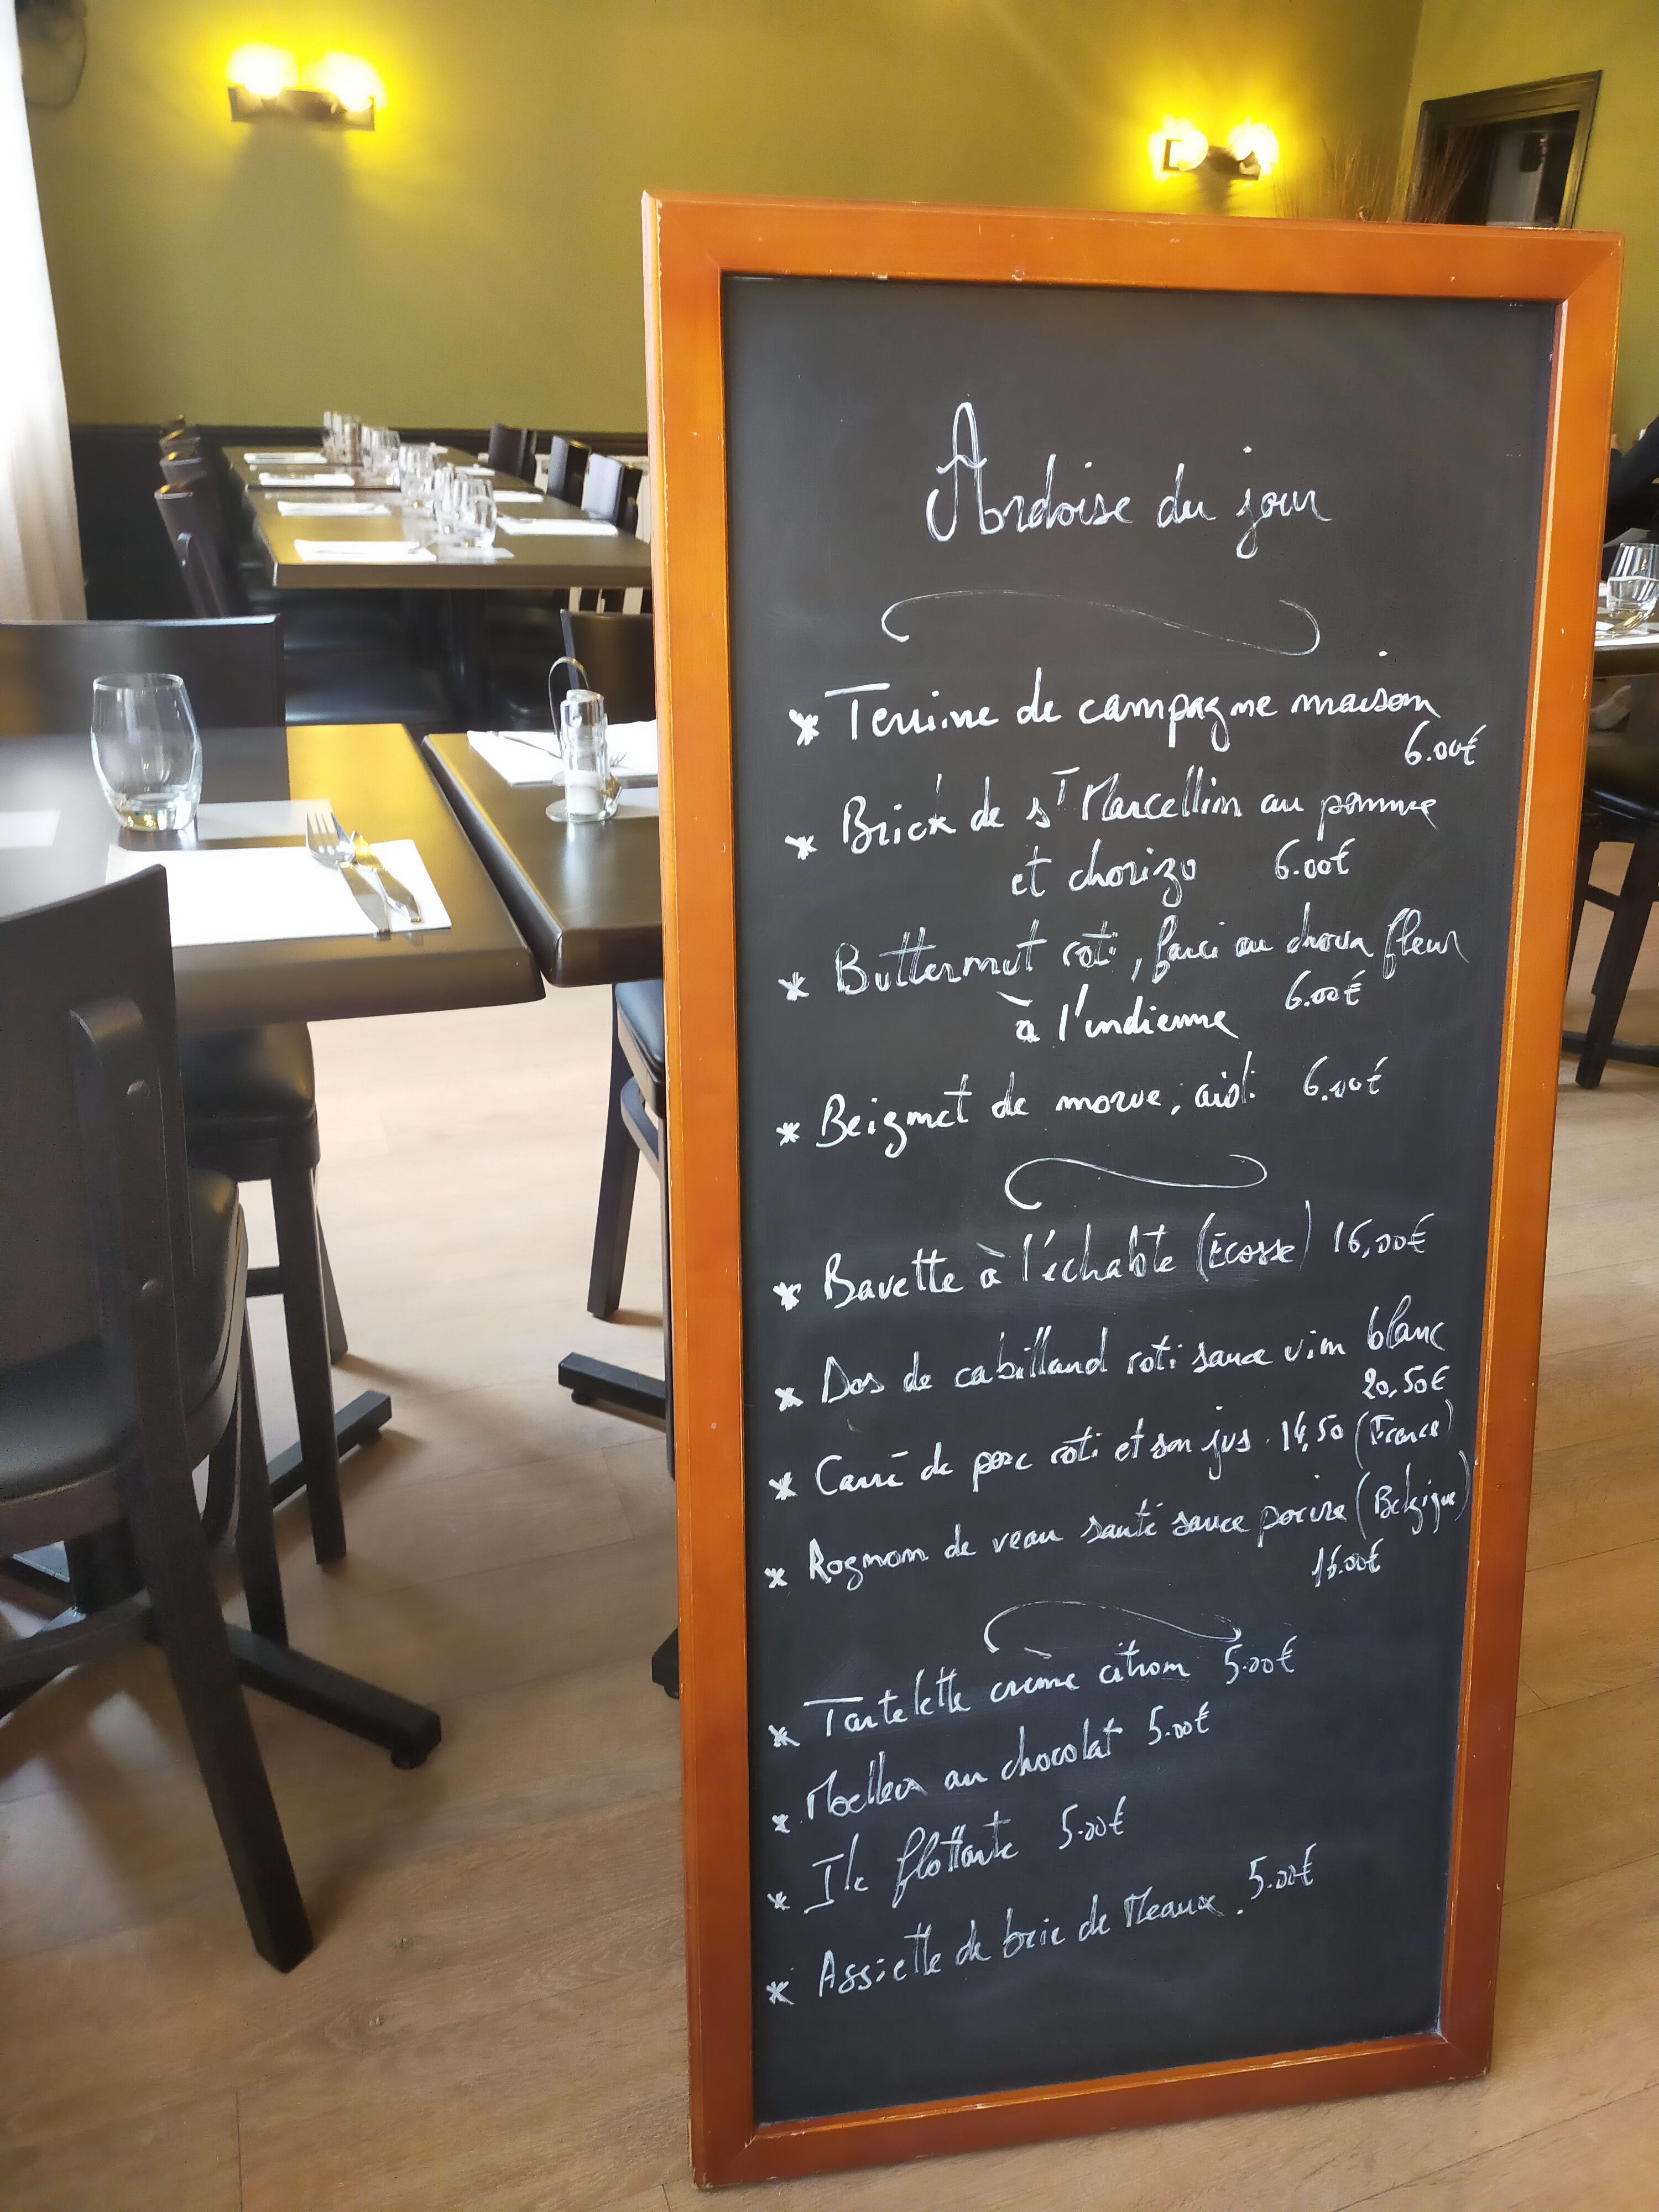 Ardoise du jour
* Terrine de campagne maison
6.00€
* Brick de sT Marcellin au pomme
et chorizo 6.00€
* Butternut roti, farci au choux fleur
à l'indienne 6.00€
* Beignet de morue, aioli 6.00€
* Bavette à l'échalote (Ecosse) 16,00€
* Dos de cabillaud roti sauce vin blanc
20,50€
* Carré de porc roti et son jus. 14,50 (France)
* Rognon de veau sauté sauce poivre (Belgique)
16.00€
* Tartelette crème citron 5.00€
* Moelleux au chocolat 5.00€
* Ile flottante 5.00€
* Assiette de brie de Meaux. 5.00€